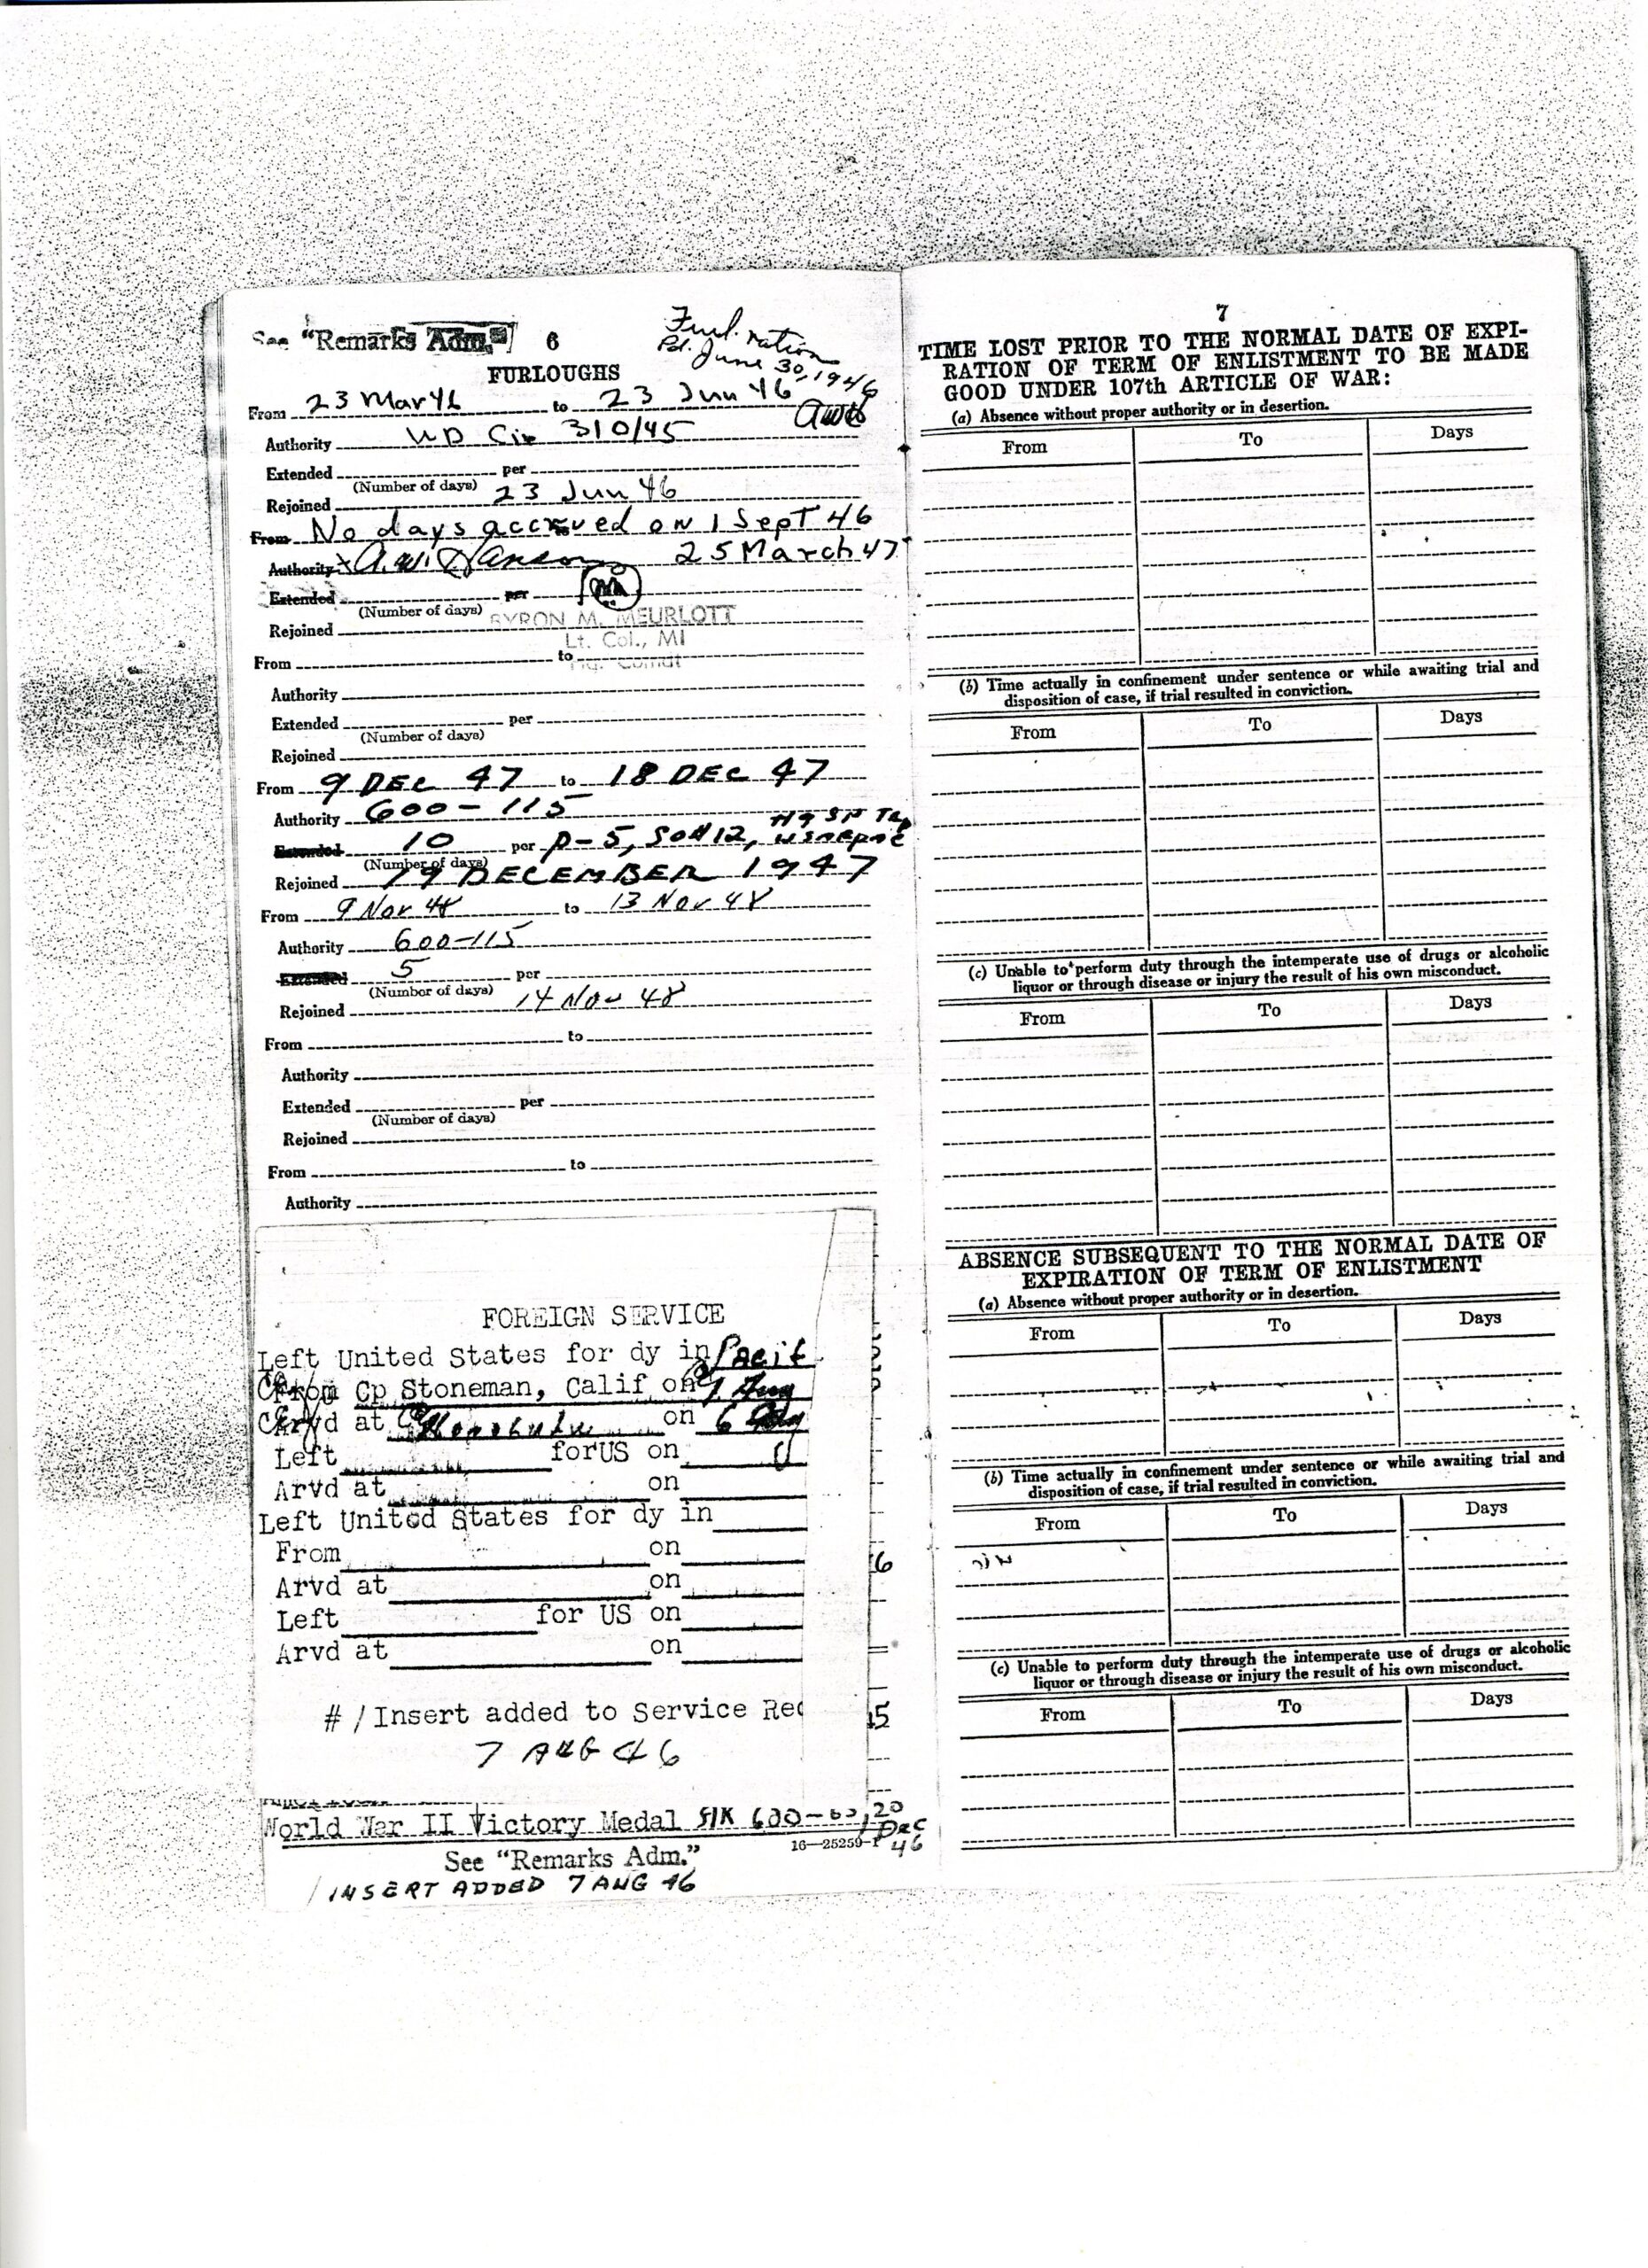 See "Remarks Adm." 6
Furl. ration
Pd. June 30, 1946
FURLOUGHS
From 23 Mar 46 to 23 Jun 46
Authority WD Cir 310/45
Extended per
(Number of days)
Rejoined 23 Jun 46
From No days accrued on 1 Sept 46
Authority A.W. Hanson 25 March 47
Extended per
(Number of days)
BYRON M. MEURLOTT
Rejoined
Lt. Col., MI
From to
Authority
Extended per
(Number of days)
Rejoined
From 9 DEC 47 to 18 DEC 47
Authority 600-115
Extended 10 per P-5, SO#12, Hq SP Trp
(Number of days)
Rejoined 19 DECEMBER 1947
From 9 Nov 48 to 13 Nov 48
Authority 600-115
Extended 5 per
(Number of days)
Rejoined 14 Nov 48
From to
Authority
Extended per
(Number of days)
Rejoined
From to
Authority
FOREIGN SERVICE
Left United States for dy in Pacif
From Cp Stoneman, Calif on 1 Aug
Arvd at Honolulu on 6 Aug
Left forUS on
Arvd at on
Left United States for dy in
From on
Arvd at on
Left for US on
Arvd at on
#1 Insert added to Service Rec
7 AUG 46
World War II Victory Medal 600- 20 Dec 46
16—25259-1
See "Remarks Adm."
1 INSERT ADDED 7 AUG 46
7
TIME LOST PRIOR TO THE NORMAL DATE OF EXPI-
RATION OF TERM OF ENLISTMENT TO BE MADE
GOOD UNDER 107th ARTICLE OF WAR:
(a) Absence without proper authority or in desertion.
From To Days
(b) Time actually in confinement under sentence or while awaiting trial and
disposition of case, if trial resulted in conviction.
From To Days
(c) Unable to perform duty through the intemperate use of drugs or alcoholic
liquor or through disease or injury the result of his own misconduct.
From To Days
ABSENCE SUBSEQUENT TO THE NORMAL DATE OF
EXPIRATION OF TERM OF ENLISTMENT
(a) Absence without proper authority or in desertion.
From To Days
(b) Time actually in confinement under sentence or while awaiting trial and
disposition of case, if trial resulted in conviction.
From To Days
(c) Unable to perform duty through the intemperate use of drugs or alcoholic
liquor or through disease or injury the result of his own misconduct.
From To Days